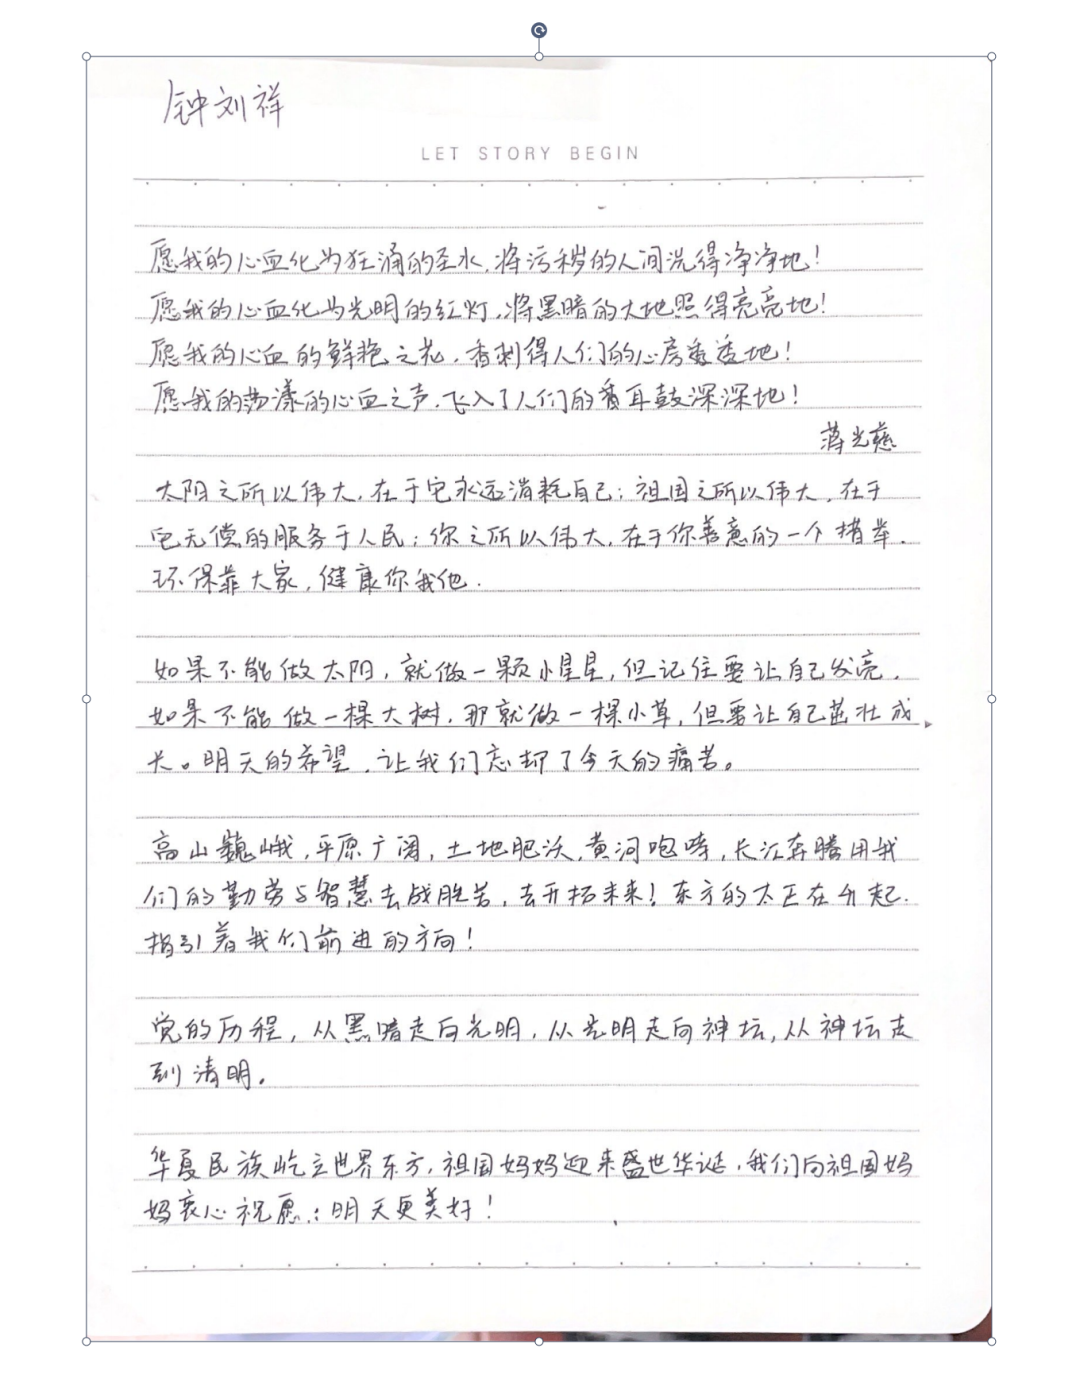 钟刘祥
LET STORY BEGIN
愿我的心血化为狂涌的圣水,将污秽的人间洗得净净地!
愿我的心血化为光明的红灯,将黑暗的大地照得亮亮地!
愿我的心血的鲜艳之花,香刺得人们的心房透地!
愿我的荡漾的心血之声,飞入了人们的耳鼓深深地!
蒋光慈
太阳之所以伟大,在于它永远消耗自己;祖国之所以伟大,在于
它无偿的服务于人民;你之所以伟大,在于你善意的一个措举.
环保靠大家,健康你我他.
如果不能做太阳,就做一颗小星星,但记住要让自己发亮.
如果不能做一棵大树,那就做一棵小草,但要让自己茁壮成
长。明天的希望,让我们忘却了今天的痛苦。
高山巍峨,平原广阔,土地肥沃,黄河咆哮,长江奔腾用我
们的勤劳与智慧去战胜苦,去开拓未来!东方的太正在升起.
指引着我们前进的方向!
党的历程,从黑暗走向光明,从光明走向神坛,从神坛走
到清明.
华夏民族屹立世界东方,祖国妈妈迎来盛世华诞,我们向祖国妈
妈衷心祝愿:明天更美好!